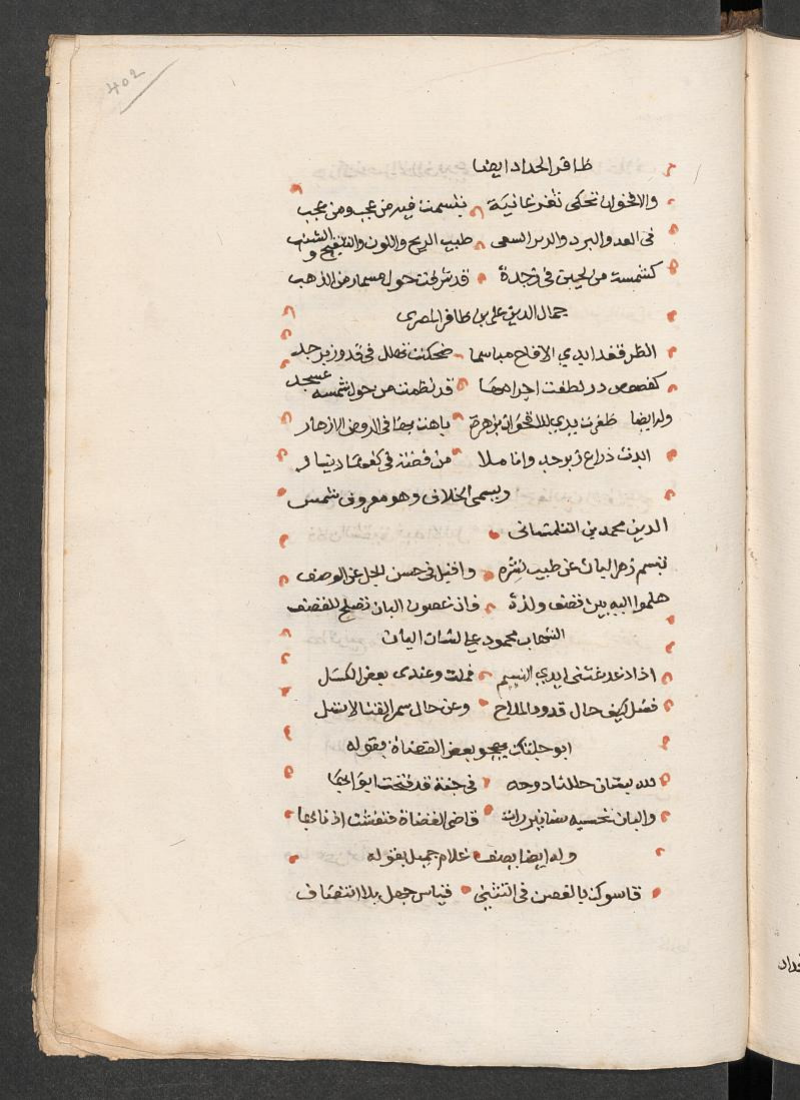 402
ظافر الحداد ايضا
والاقحوان تحكى ثغر غانية تبسمت فيه من عجب ومن عجب
فى القد والبرد والريق الشهى طيب الريح واللون والتفليج و الشنب
كشمسة من لجين فى زبرجدة قد شرفت حول مسمار من الذهب
جمال الدين على بن ظافر المصرى
انظر فقد ابدي الاقاح مباسما ضحكت تهلل فى قدود زبرجد
كفصوص در لطفت اجرامها قد نظمت من حول شمسه عسجد
وله ايضا ظفرت يدي للاقحوان بزهرة باهت بها فى الروض الازهار
ابدت ذراع زبرجد وانا ملا من فضة فى كفها دينار
ويسمى الخلاف وهو معروف شمس
الدين محمد بن التلمسانى
تبسم زهر البان عن طيب نشره واقبل فى حسن يجل عن الوصف
هلموا اليه بين قصف ولذة فان غصون البان تصلح للقصف
الشهاب محمود على لسان البان
اذا دغدغتنى ايدي النسيم فملت وعندى بعض الكسل
فسل كيف حال قدود الملاح وعن حال سمر القنا لا تسل
ابو جلنك يهجو بعض القضاة بقوله
لله بستان حللنا دوحه فى جنة قد فتحت ابوابها
والبان تحسبه سنانير رات قاضى القضاة فنفشت اذنابها
وله ايضا يصف غلام جميل بقوله
قاسوك بالغصن فى التثنى قياس جهل بلا انتصاف